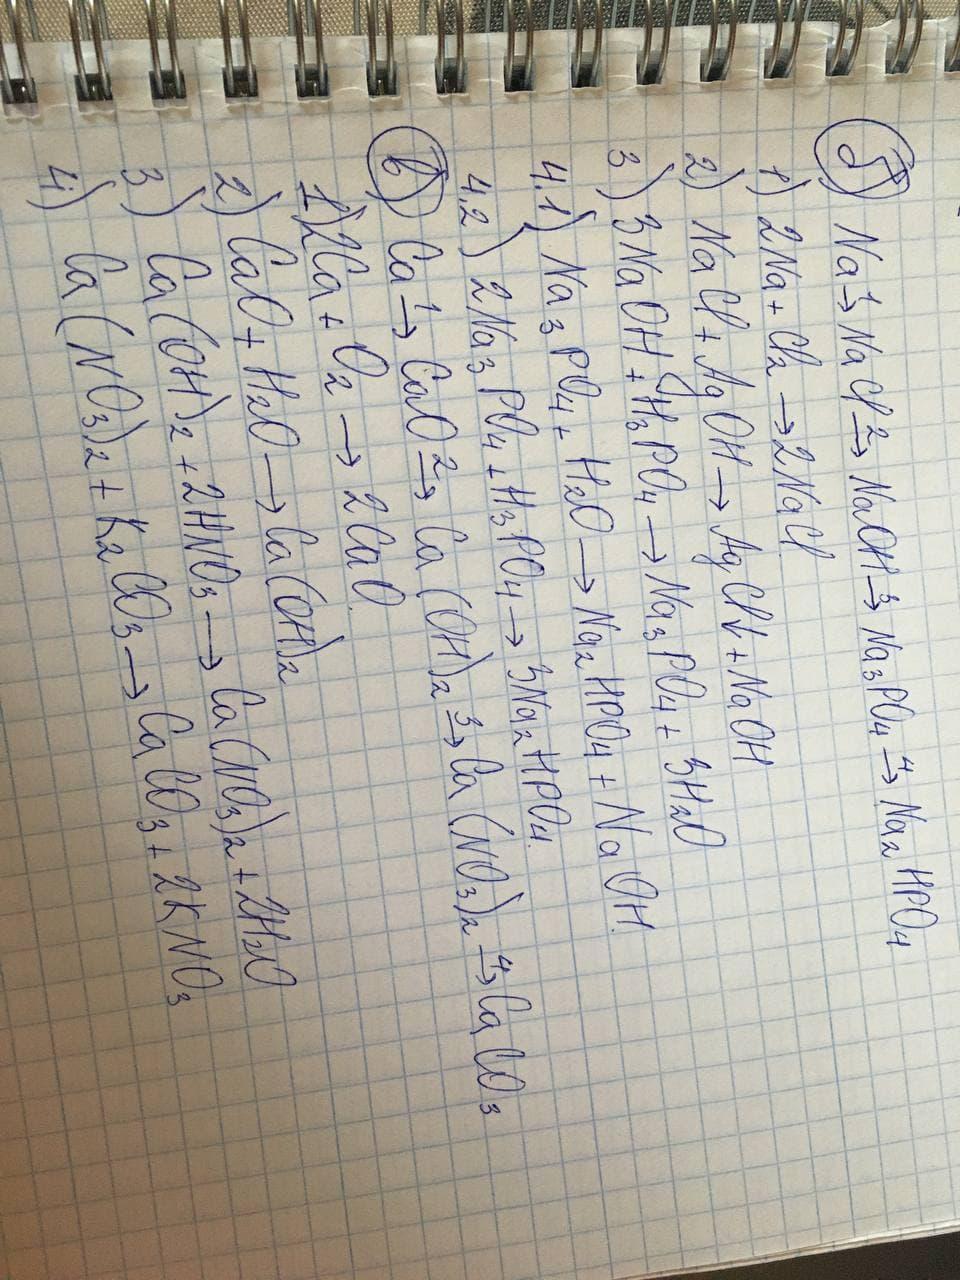 б) Na →¹ NaCl →² NaOH →³ Na₃PO₄ →⁴ Na₂HPO₄
1) 2Na + Cl₂ → 2NaCl
2) NaCl + AgOH → AgCl↓ + NaOH
3) 3NaOH + H₃PO₄ → Na₃PO₄ + 3H₂O
4.1) Na₃PO₄ + H₂O → Na₂HPO₄ + NaOH
4.2) 2Na₃PO₄ + H₃PO₄ → 3Na₂HPO₄.
в) Ca →¹ CaO →² Ca(OH)₂ →³ Ca(NO₃)₂ →⁴ CaCO₃
1) 2Ca + O₂ → 2CaO.
2) CaO + H₂O → Ca(OH)₂
3) Ca(OH)₂ + 2HNO₃ → Ca(NO₃)₂ + 2H₂O
4) Ca(NO₃)₂ + K₂CO₃ → CaCO₃ + 2KNO₃